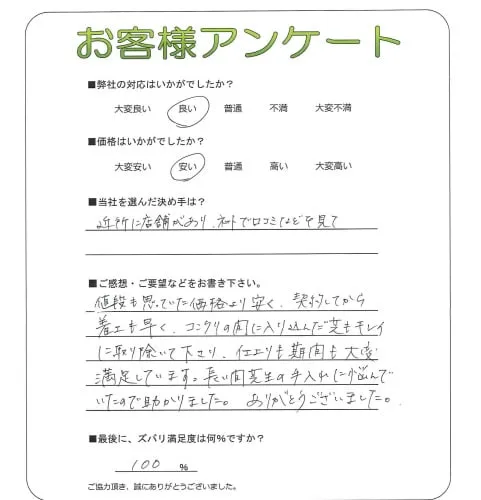 お客様アンケート
■弊社の対応はいかがでしたか？
大変良い 良い 普通 不満 大変不満
■価格はいかがでしたか？
大変安い 安い 普通 高い 大変高い
■当社を選んだ決め手は？
近所に店舗があり、ネットで口コミなどを見て
■ご感想・ご要望などをお書き下さい。
値段も思っていた価格より安く、契約してから
着工も早く、コンクリの間に入り込んだ芝もキレイ
に取り除いて下さり、仕上りも期間も大変
満足しています。長い間芝生の手入れに悩んで
いたので助かりました。ありがとうございました。
■最後に、ズバリ満足度は何％ですか？
100 %
ご協力頂き、誠にありがとうございました。